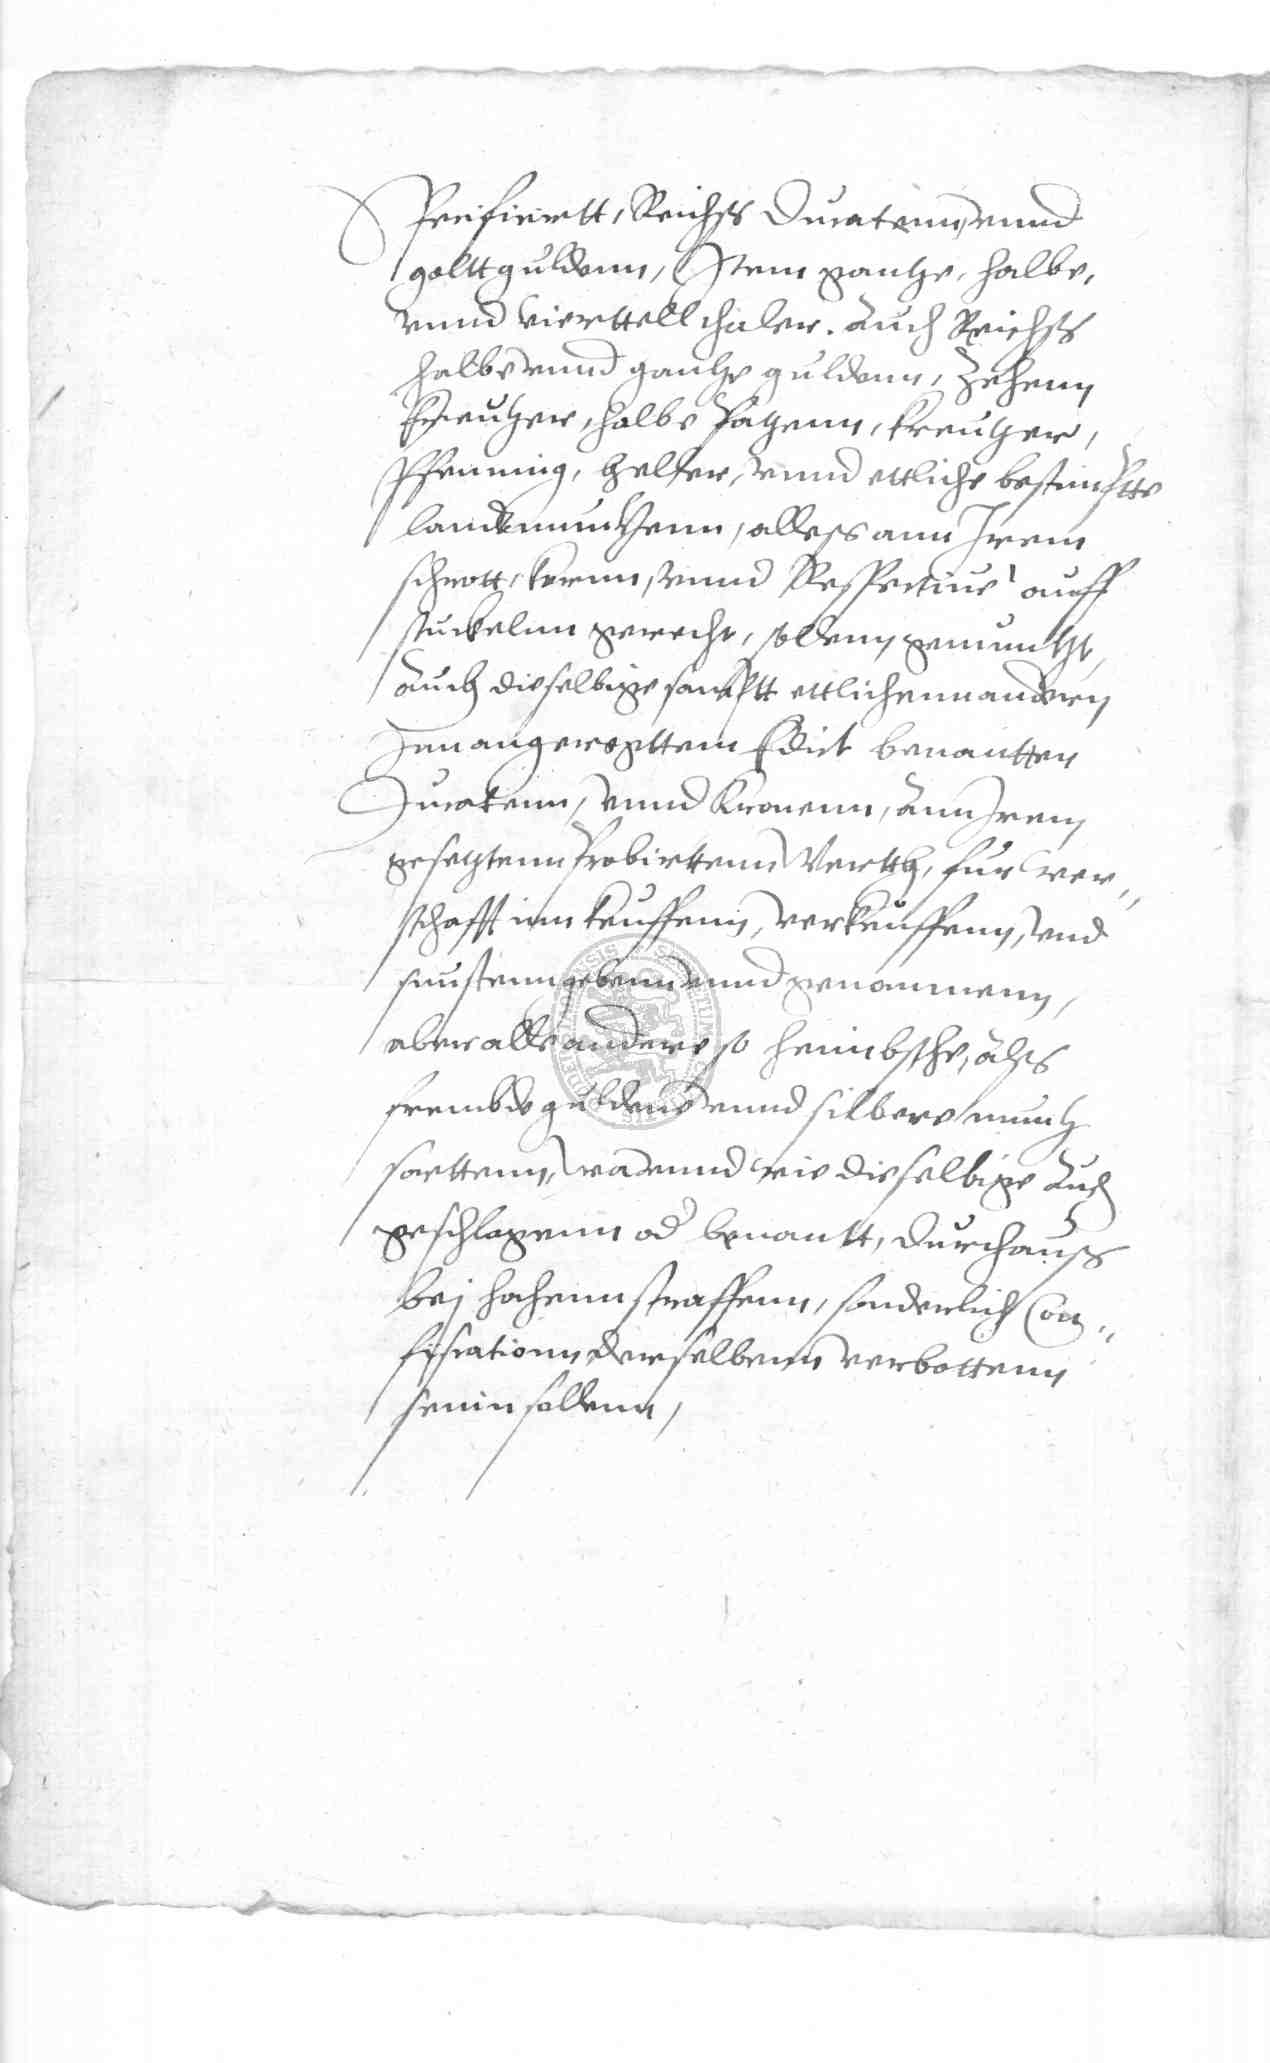 Specificirtt, Reichss Ducatenn, vnnd
goltt guldenn, Item gantze, halbe,
vnnd vierttell thaler. Auch Reichss
halbe vnnd gantze guldenn, Zehenn
Kreutzer, halbe Patzenn, kreutzer,
Pfenning, heller, vnnd ettliche bestimptte
landtmuntzenn, alless ann Irem
schrott, kornn, vnnd Respective auff
stuckelnn gerecht, sollenn gemuntzt,
Auch dieselbige sampt ettlichenn andern
Inn angeregttem Edict benantten
Ducatenn, vnnd Kronenn, Ann Irem
gesetztenn Probirttenn Werth, fur wer„
schafft inn keuffenn, verkeuffenn, vnd
sunstenn gebenn vnnd genommenn,
aber alle andere so heimbsche, alss
frembde guldene vnnd silbere muntz
sorttenn, wa vnnd wie dieselbige Auch
geschlagenn od benantt, durchauss
bej hohenn straffenn, sonderlich Con„
fiscationn derselbenn verbottenn
seinn sollenn,